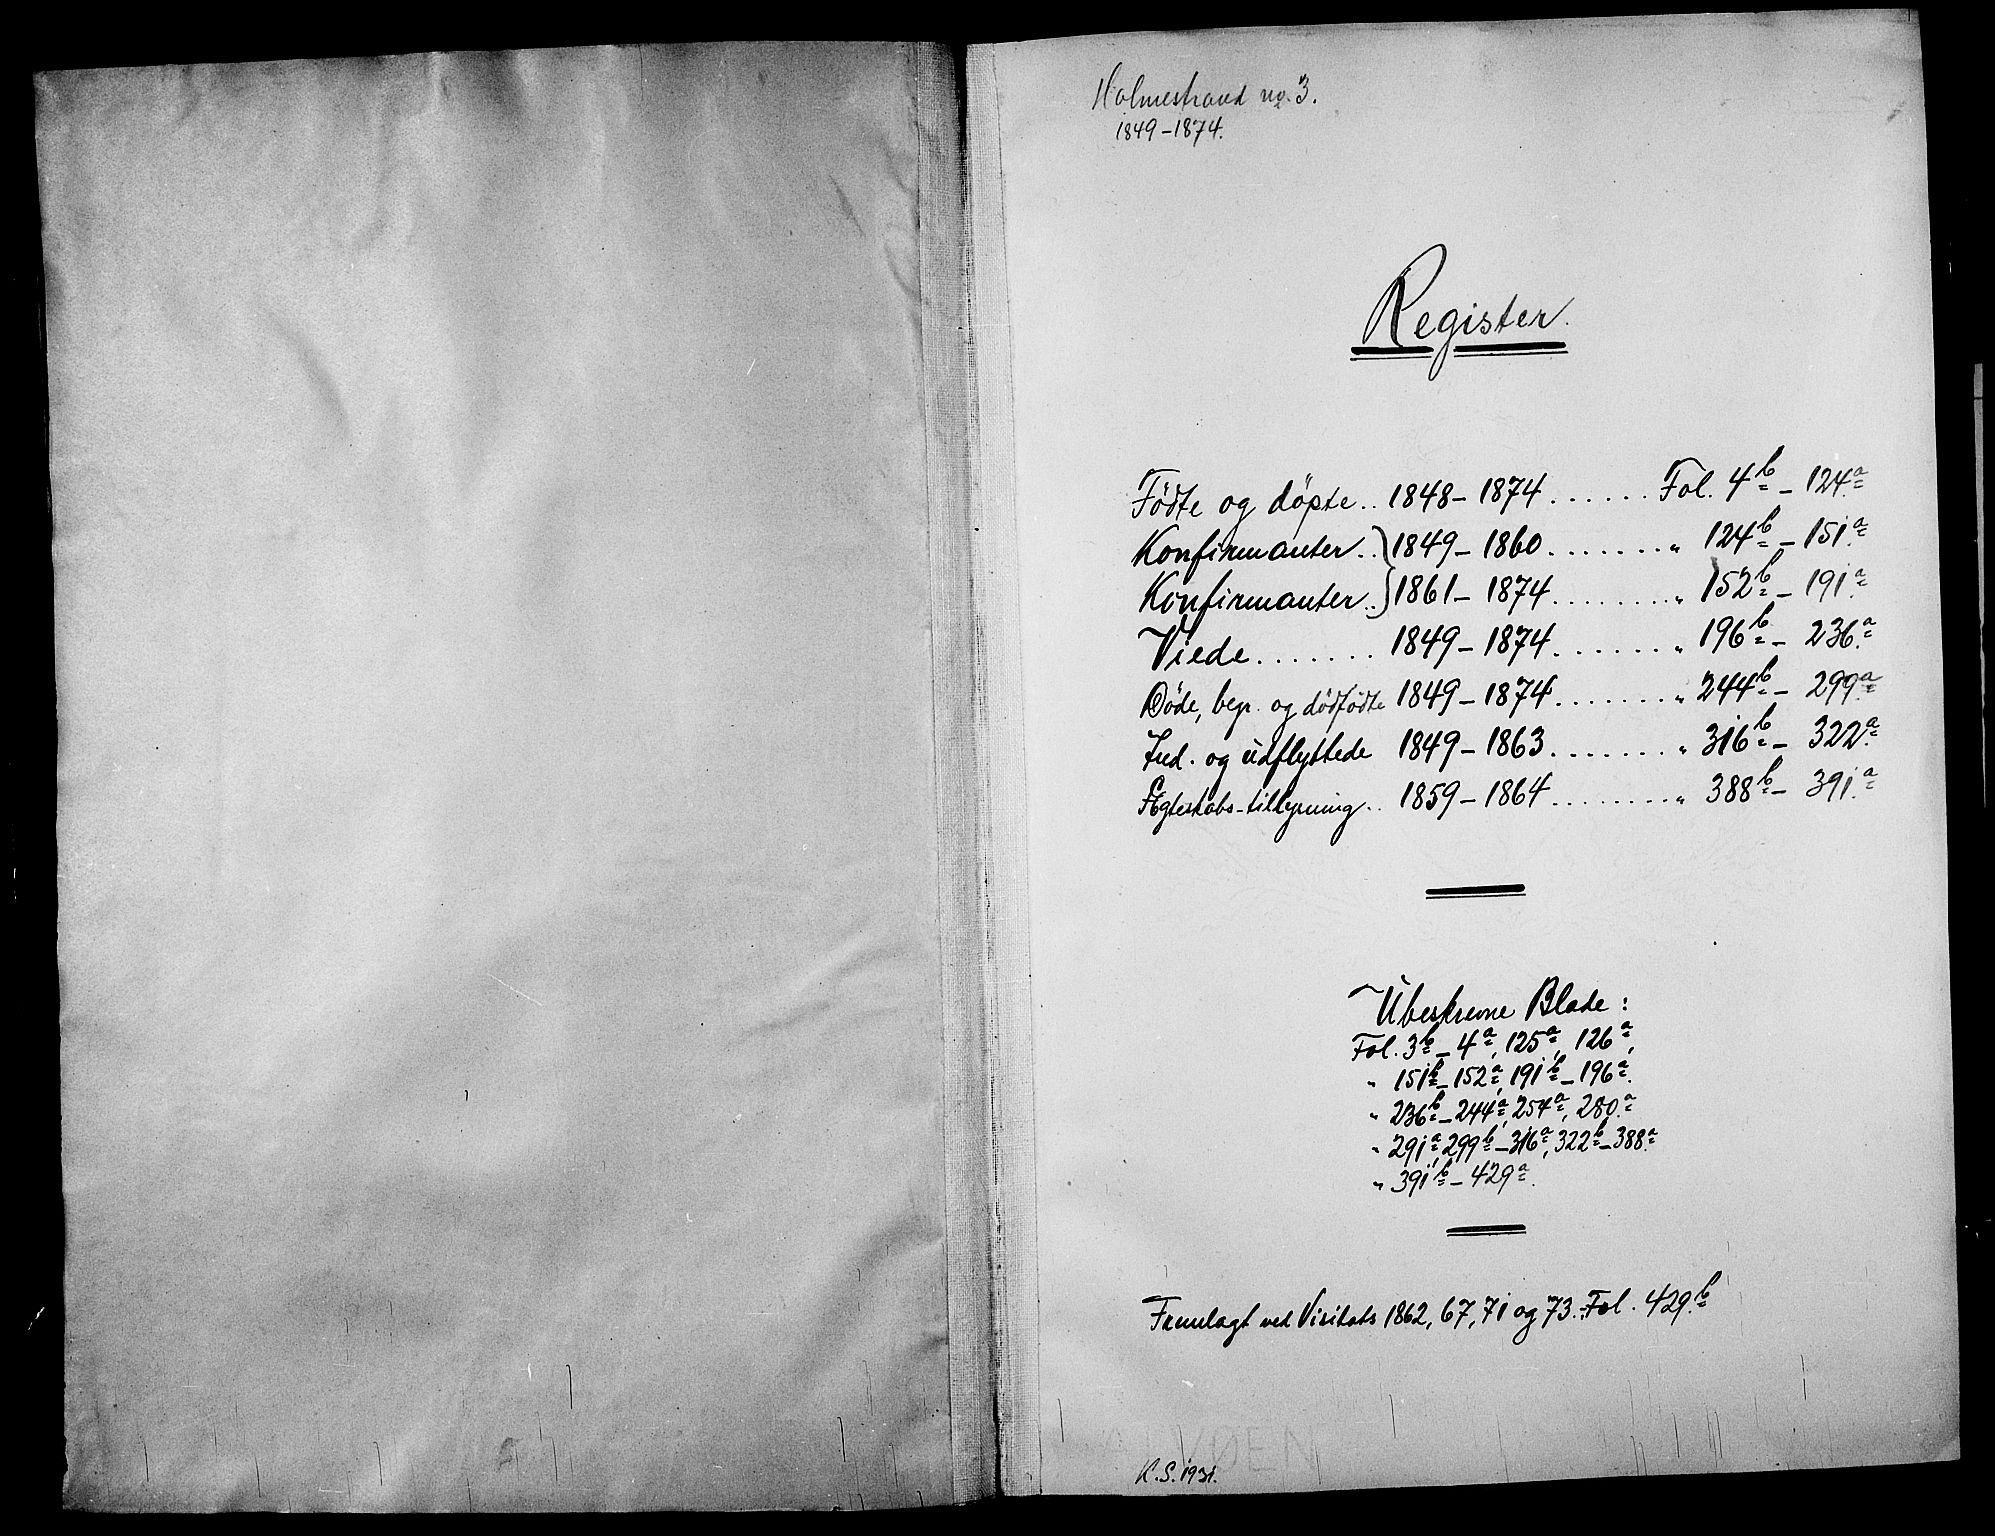 Holmestrand no. 3.
1849-1874.
Register.
Födte og döpte .. 1848 - 1874 ...... Fol. 4b - 124a
Konfirmanter .. } 1849 - 1860 ....... " 124b - 151a
Konfirmanter .. } 1861 - 1874 ........ " 152b - 191a
Viede ....... 1849 - 1874 ....... " 196b - 236a
Döde, begr. og dödfödte 1849 - 1874 ....... " 244b - 299a
Ind. og udflyttede 1849 - 1863 ....... " 316b - 322a
Ægteskabs-tillysning .. 1859 - 1864 ........ " 388b - 391a
Ubeskrevne Blade :
Fol. 3b - 4a, 125a, 126a,
" 151b - 152a, 191b - 196a.
" 236b - 244a, 254a, 280a
" 291a, 299b - 316a, 322b - 388a
" 391b - 429a.
Fremlagt ved Visitats 1862, 67, 71 og 73. Fol. 429b
K.S. 1931.